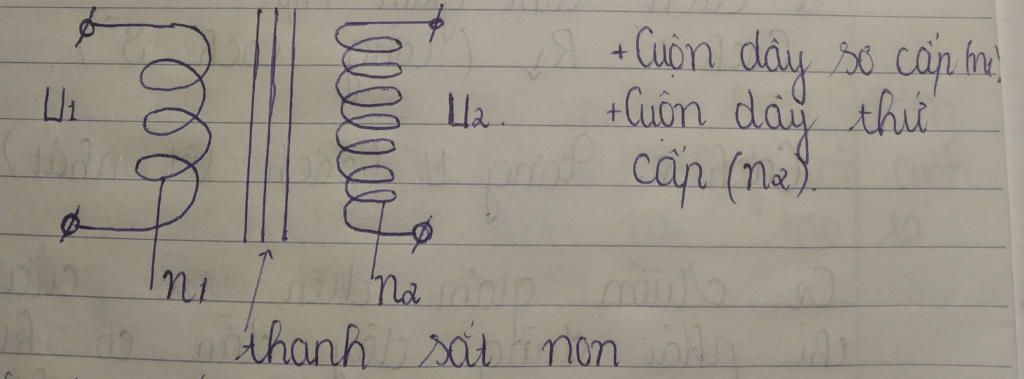 +Cuộn dây sơ cấp (n1)
U1
U2.
+Cuộn dây thứ
cấp (n2).
n1
n2
thanh sắt non